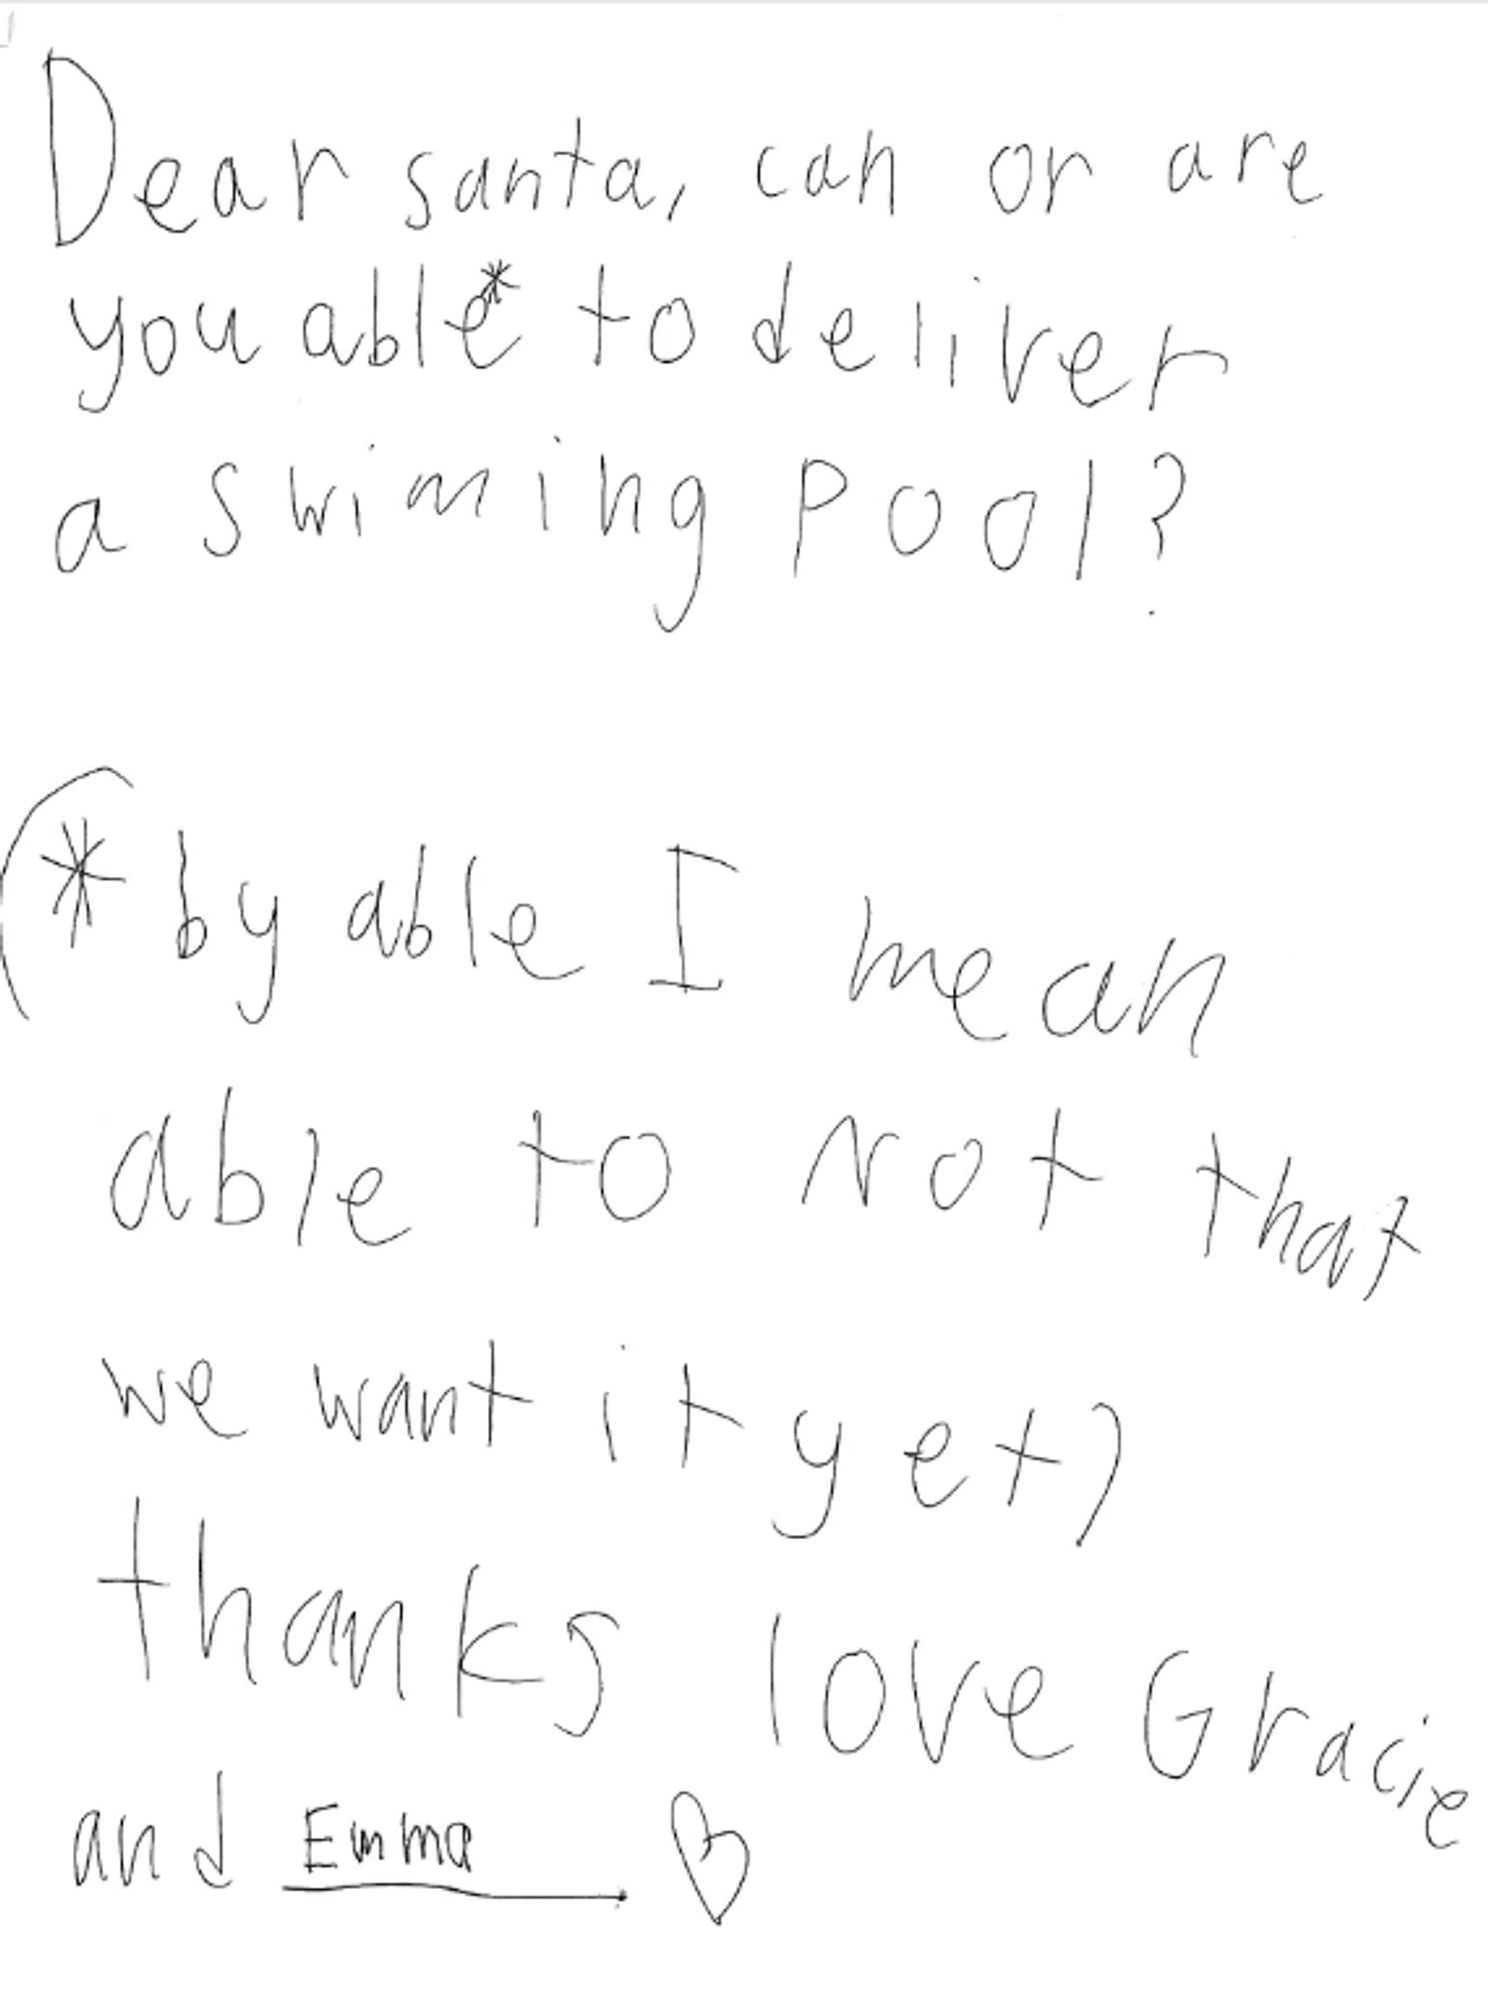 Dear santa, can or are
you able* to deliver
a swiming pool?
(* by able I mean
able to not that
we want it yet)
thanks love Gracie
and Emma